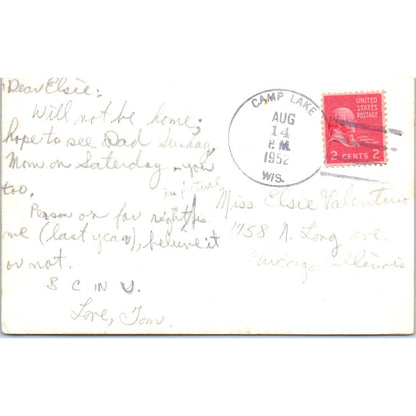 Dear Elsie:
Will not be home;
hope to see Dad Sunday,
Mom on Saturday - you
too.
in picture
Person on far right is
me (last year), believe it
or not.
B C IN U.
Love, Tom.
CAMP LAKE
AUG
14
P.M.
1952
WIS.
UNITED STATES POSTAGE
2 CENTS 2
Miss Elsie Valentino
1758 N. Long ave.
Chicago, Illinois